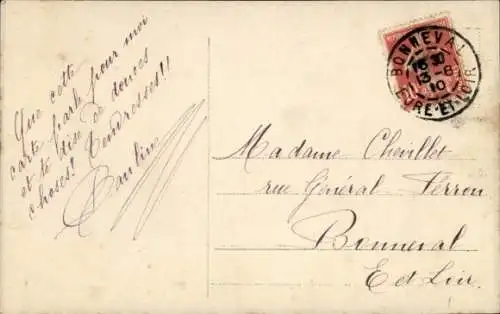 Que cette
carte parle pour moi
et te dise de douces
choses! Tendresses!!
Pauline
BONNEVAL
16 30
13 - 8
10
EURE-ET-LOIR
Madame Chevillet
rue Général
Bonneval
E et Loir